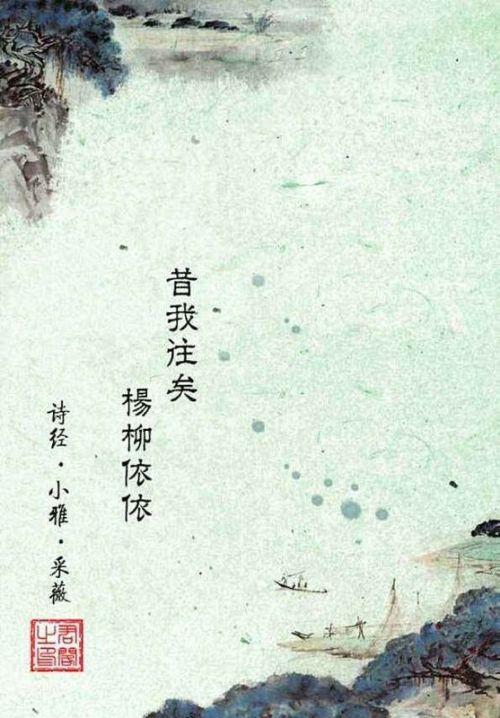 昔我往矣
楊柳依依
诗经·小雅·采薇